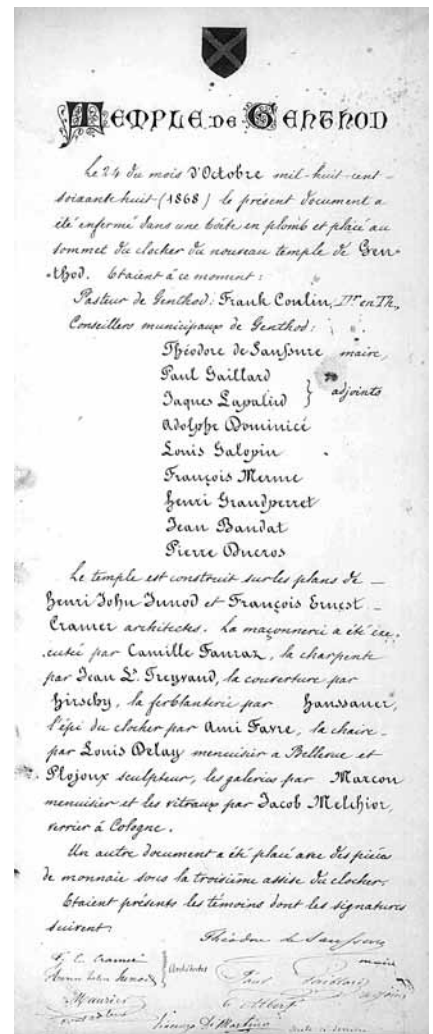 TEMPLE DE GENTHOD
Le 24 du mois d'Octobre mil-huit-cent-
soixante huit (1868) le présent document a
été enfermé dans une boîte en plomb et placé au
sommet du clocher du nouveau temple de Gen-
thod. Étaient à ce moment :
Pasteur de Genthod : Frank Coulin, Dr en Th,
Conseillers municipaux de Genthod :
Théodore de Saussure maire,
Paul Gaillard
Jaques Lapalud } adjoints
Adolphe Dominicé
Louis Galopin
François Merme
Henri Grandperret
Jean Baudat
Pierre Ducros
Le temple est construit sur les plans de
Henri John Junod et François Ernest
Cramer architectes. La maçonnerie a été exé-
cutée par Camille Fauraz, la charpente
par Jean Ls Treyvaud, la couverture par
Hirschy, la ferblanterie par Haussauer,
l'épi du clocher par Ami Favre, la chaire
par Louis Delay menuisier à Bellevue et
Plojoux sculpteur, les galeries par Marcon
menuisier et les vitraux par Jacob Melchior,
verrier à Cologne.
Un autre document a été placé avec des pièces
de monnaie sous la troisième assise du clocher.
Étaient présents les témoins dont les signatures
suivent :
Théodore de Saussure
maire
F. E. Cramer
Henri John Junod } Architectes
Paul Gaillard
adjoint